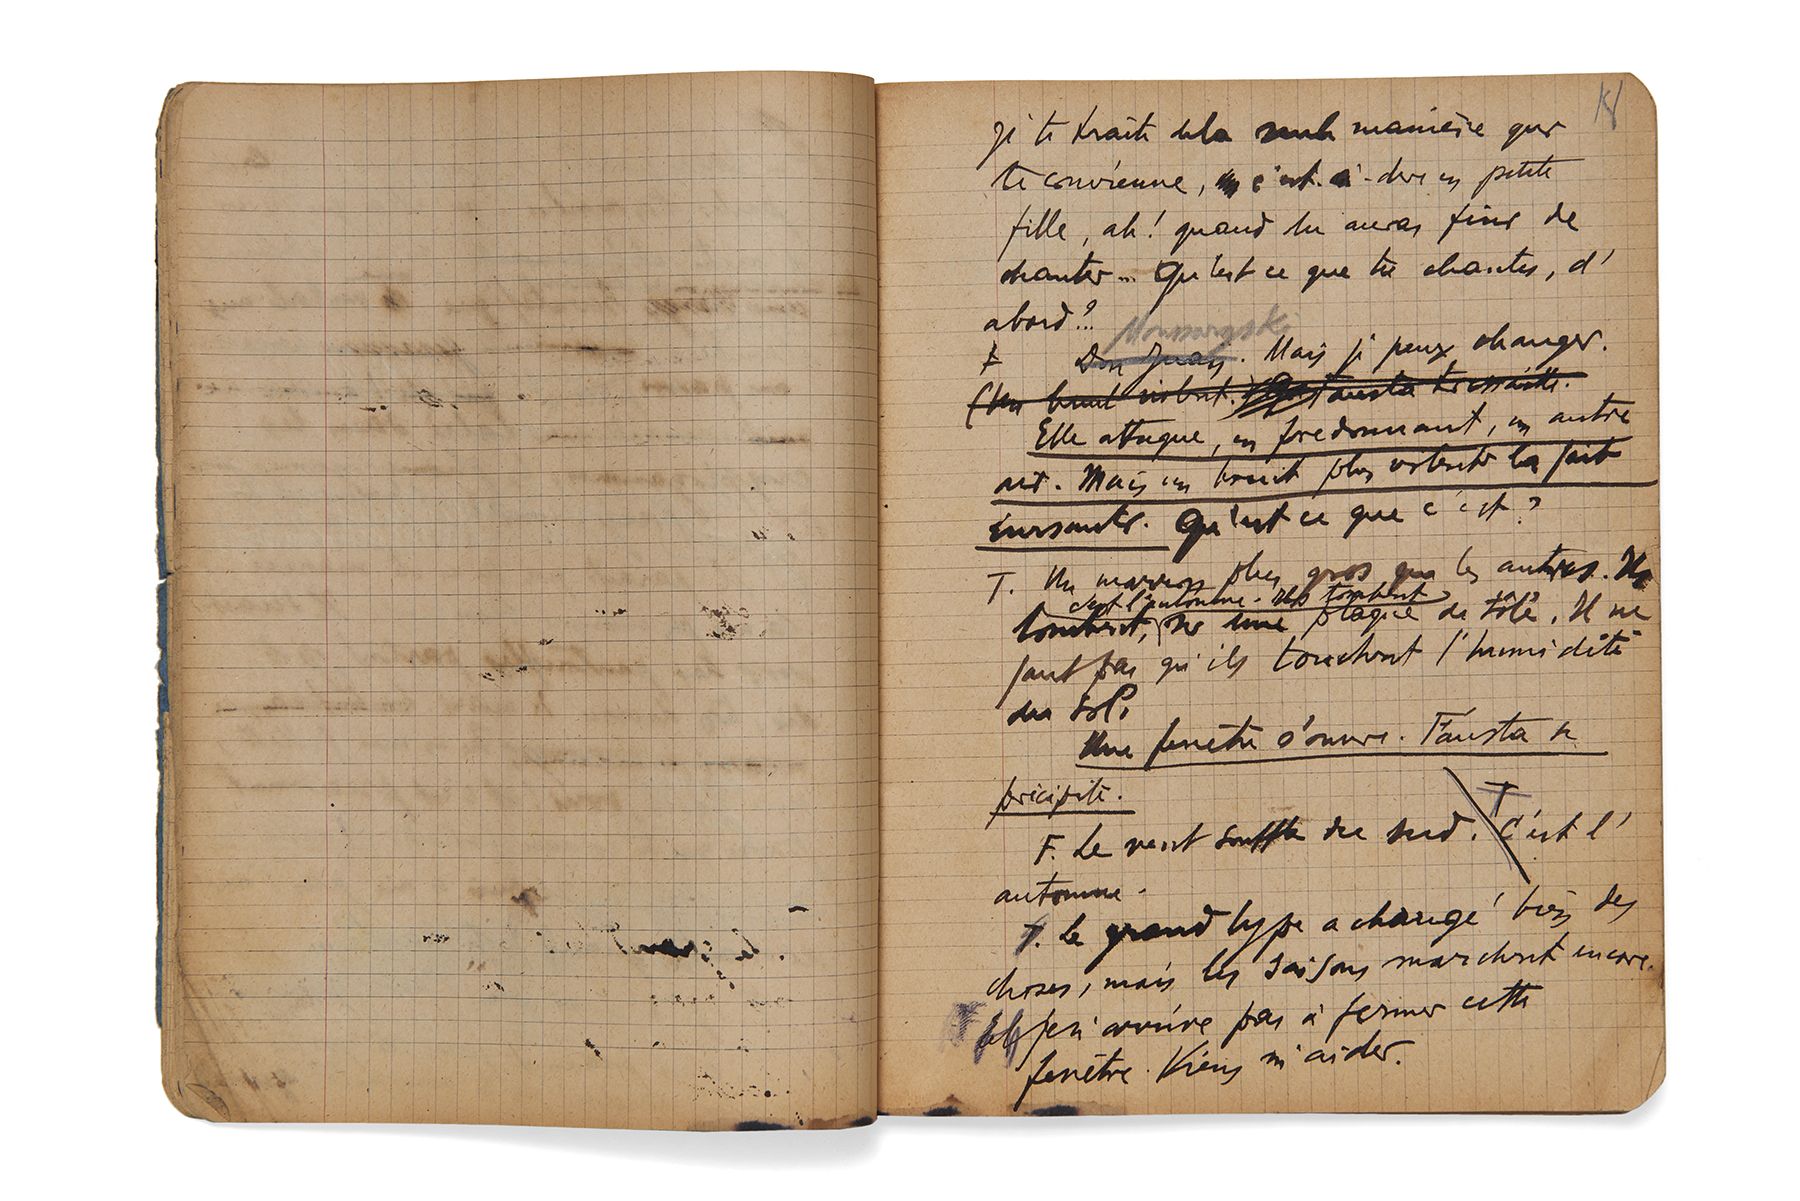 je te traite de la seule manière qui
te convienne, c'est-à-dire en petite
fille, ah! quand tu auras fini de
chanter... Qu'est ce que tu chantes, d'
abord?
Moussorgski
F Don Juan. Mais je peux changer.
(Un bruit violent. Fausta tressaille.
Elle attaque, en fredonnant, un autre
air. Mais un bruit plus violent la fait
sursauter. Qu'est ce que c'est?
T. Un marron plus gros que les autres. Ils
c'est l'automne. Ils tombent
tombent, sur une plaque de tôle. Il ne
faut pas qu'ils touchent l'humidité
du sol.
Une fenêtre s'ouvre. Fausta se
précipite.
T
F. Le vent souffle du sud. C'est l'
automne.
T. Le grand type a changé bien des
choses, mais les saisons marchent encore.
F je n'arrive pas à fermer cette
fenêtre. Viens m'aider.